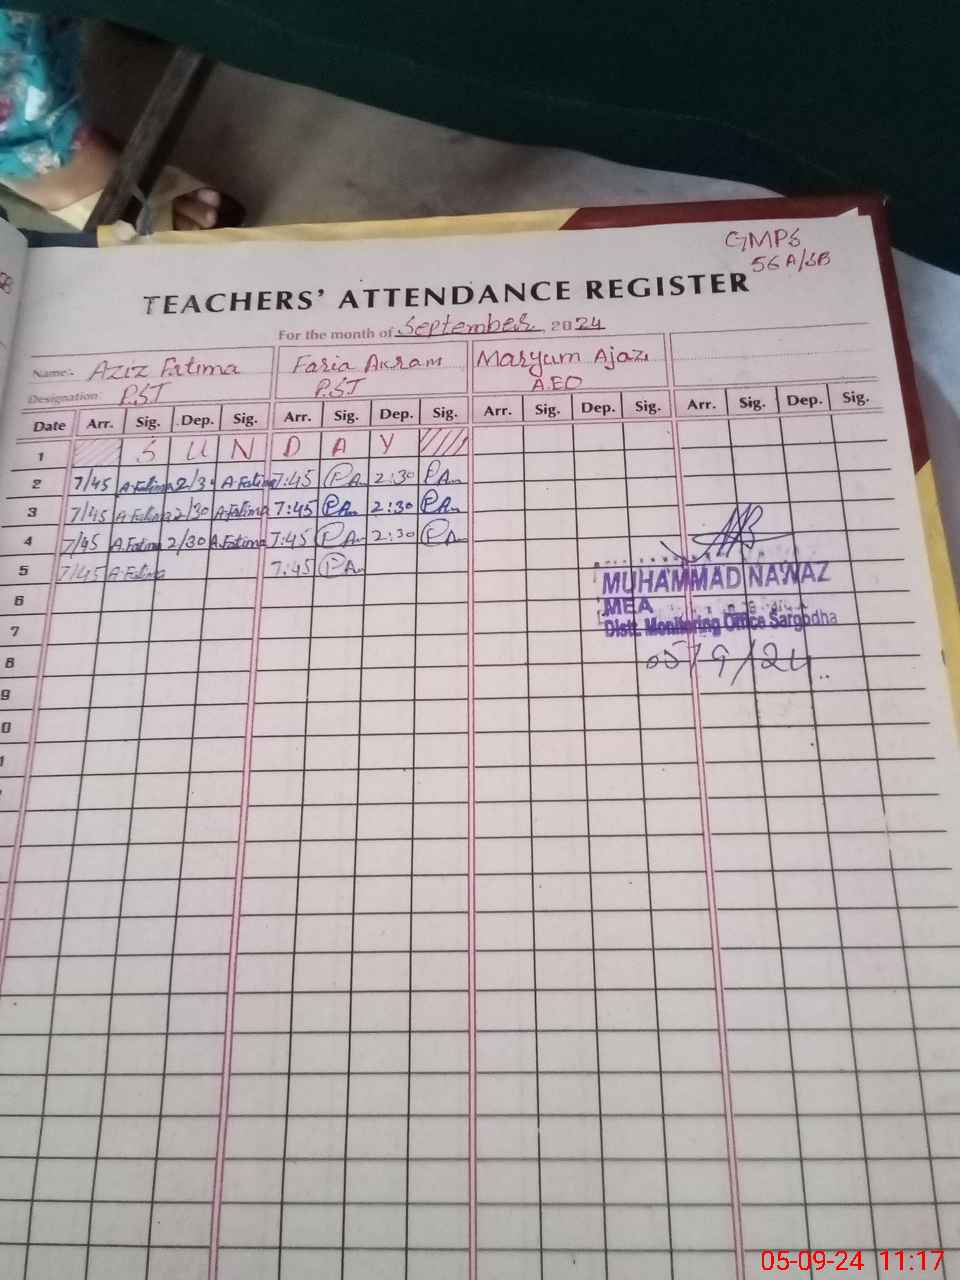 GMPS
56 A/SB
TEACHERS' ATTENDANCE REGISTER
For the month of September 2024
Name:- Aziz Fatima Faria Akram Maryum Ajaz
Designation: P.S.T P.S.T A.E.O
Date Arr. Sig. Dep. Sig. Arr. Sig. Dep. Sig. Arr. Sig. Dep. Sig. Arr. Sig. Dep. Sig.
1 S U N D A Y
2 7/45 A.Fatima 2/3 A.Fatima 7:45 2:30
3 7/45 A.Fatima 2/30 A.Fatima 7:45 2:30
4 7/45 A.Fatima 2/30 A.Fatima 7:45 2:30
5 7/45 A.Fatima 7:45
6
7
8
9
0
MUHAMMAD NAWAZ
MEA
Distt. Monitoring Office Sargodha
05/9/24
05-09-24 11:17